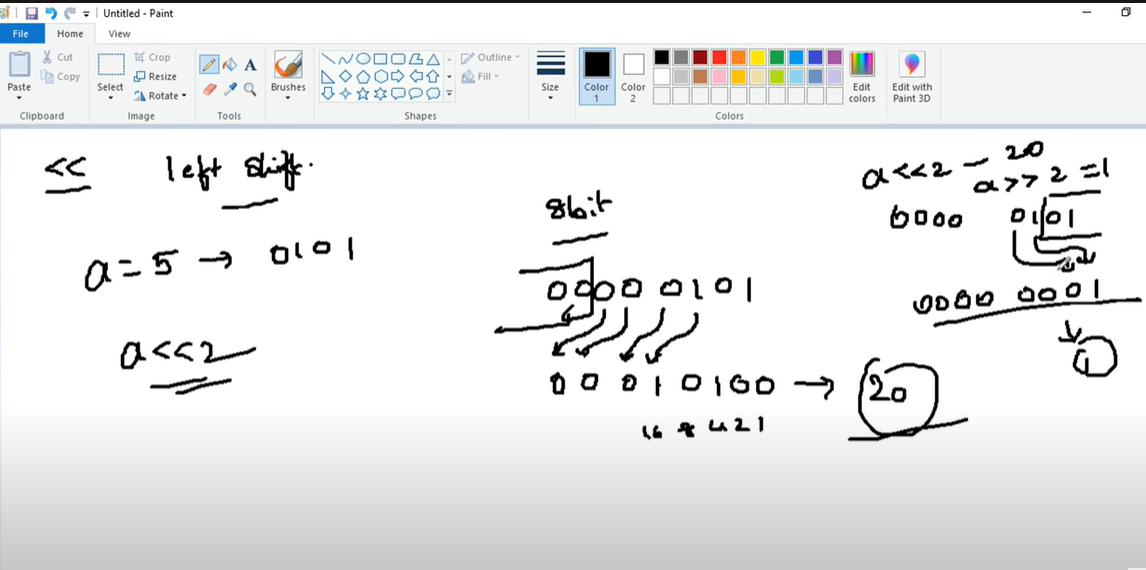 Untitled - Paint
File Home View
Cut
Copy
Paste
Clipboard
Select
Crop
Resize
Rotate
Image
A
Tools
Brushes
Shapes
Outline
Fill
Size
Color 1
Color 2
Colors
Edit colors
Edit with Paint 3D
<< left shift.
a = 5 → 0101
a<<2
8bit
0000 0101
0001 0100 → 20
16 8 4 2 1
a<<2 - 20
a>>2 = 1
0000 0101
0000 0001
1